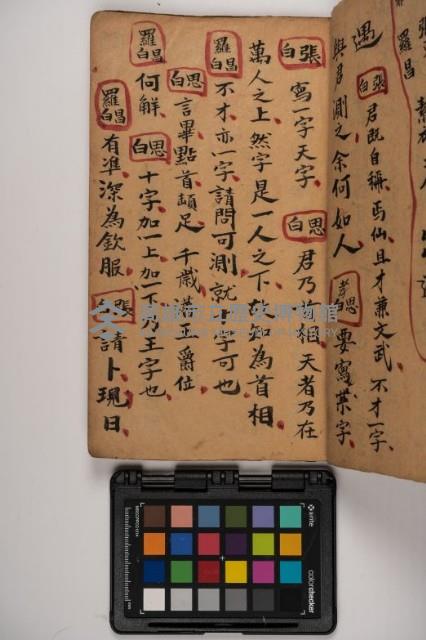 羅昌
遇 張白 君既自稱丐仙且才兼文武不才一字
與君測之余何如人 思白 要寫業字
張白 寫一字天字 思白 君乃為相天者乃在
萬人之上然字是一人之下故為首相
羅昌白 不才亦一字請問可測就字可也
思白 言畢點首頓足千歲英王爵位
羅昌白 何解 思白 十字加一上加一下乃王字也
羅昌白 有準深為欽服 張白 請卜現日
高雄市立歷史博物館
xrite
colorchecker